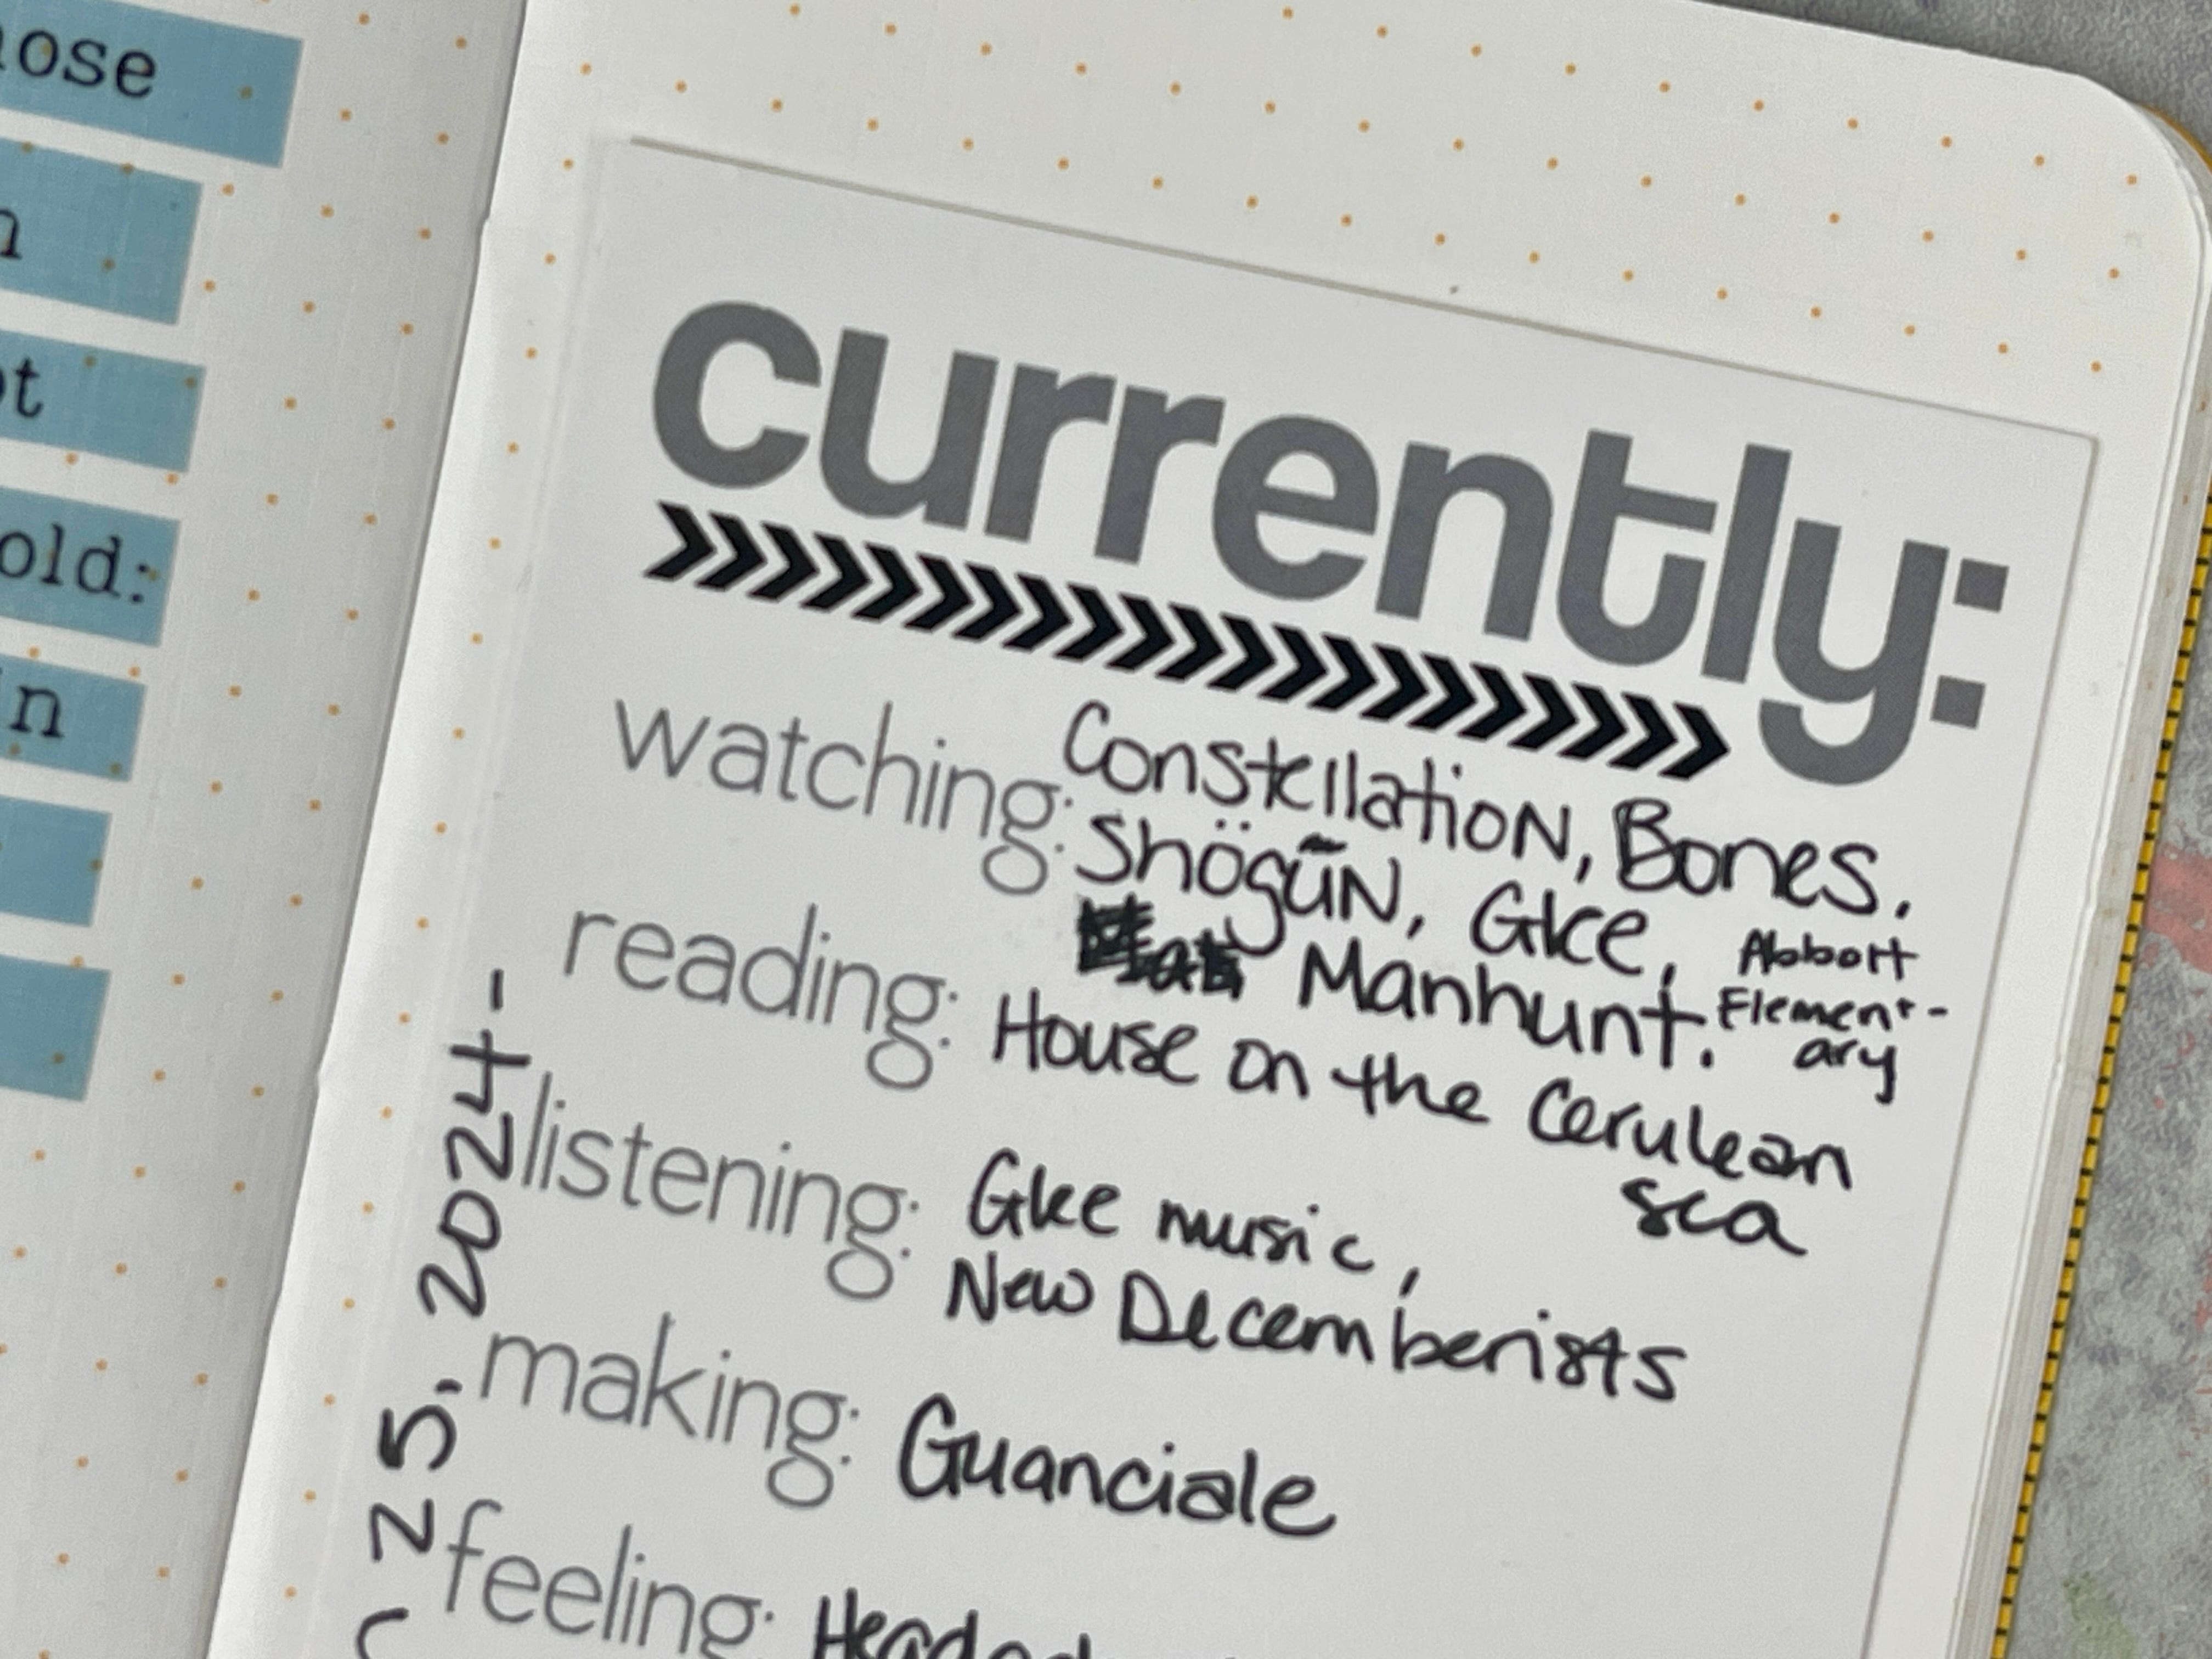 ose
n
ot
old:
in
currently:
watching: Constellation, Bones,
Shögūn, Glee,
Manhunt. Abbott
Element-
ary
reading: House on the Cerulean
Sea
listening: Glee music,
New Decemberists
making: Guanciale
feeling:
25, 2024-